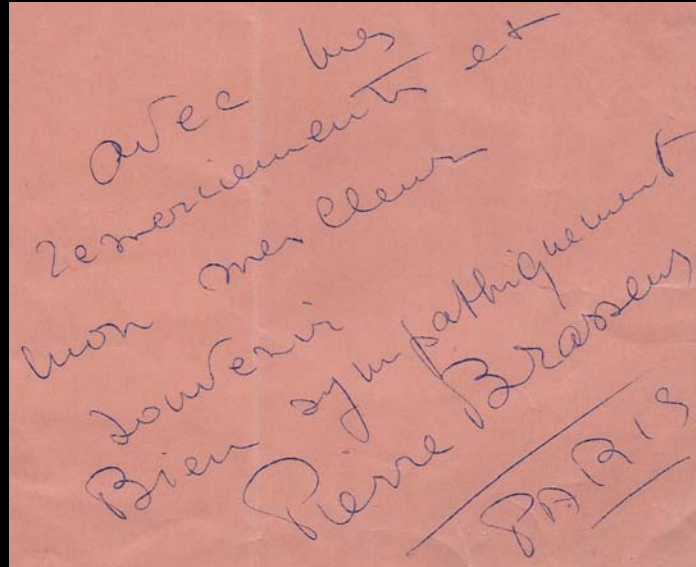 avec mes
remerciements et
mon meilleur
souvenir
Bien sympathiquement
Pierre Brasseur
PARIS